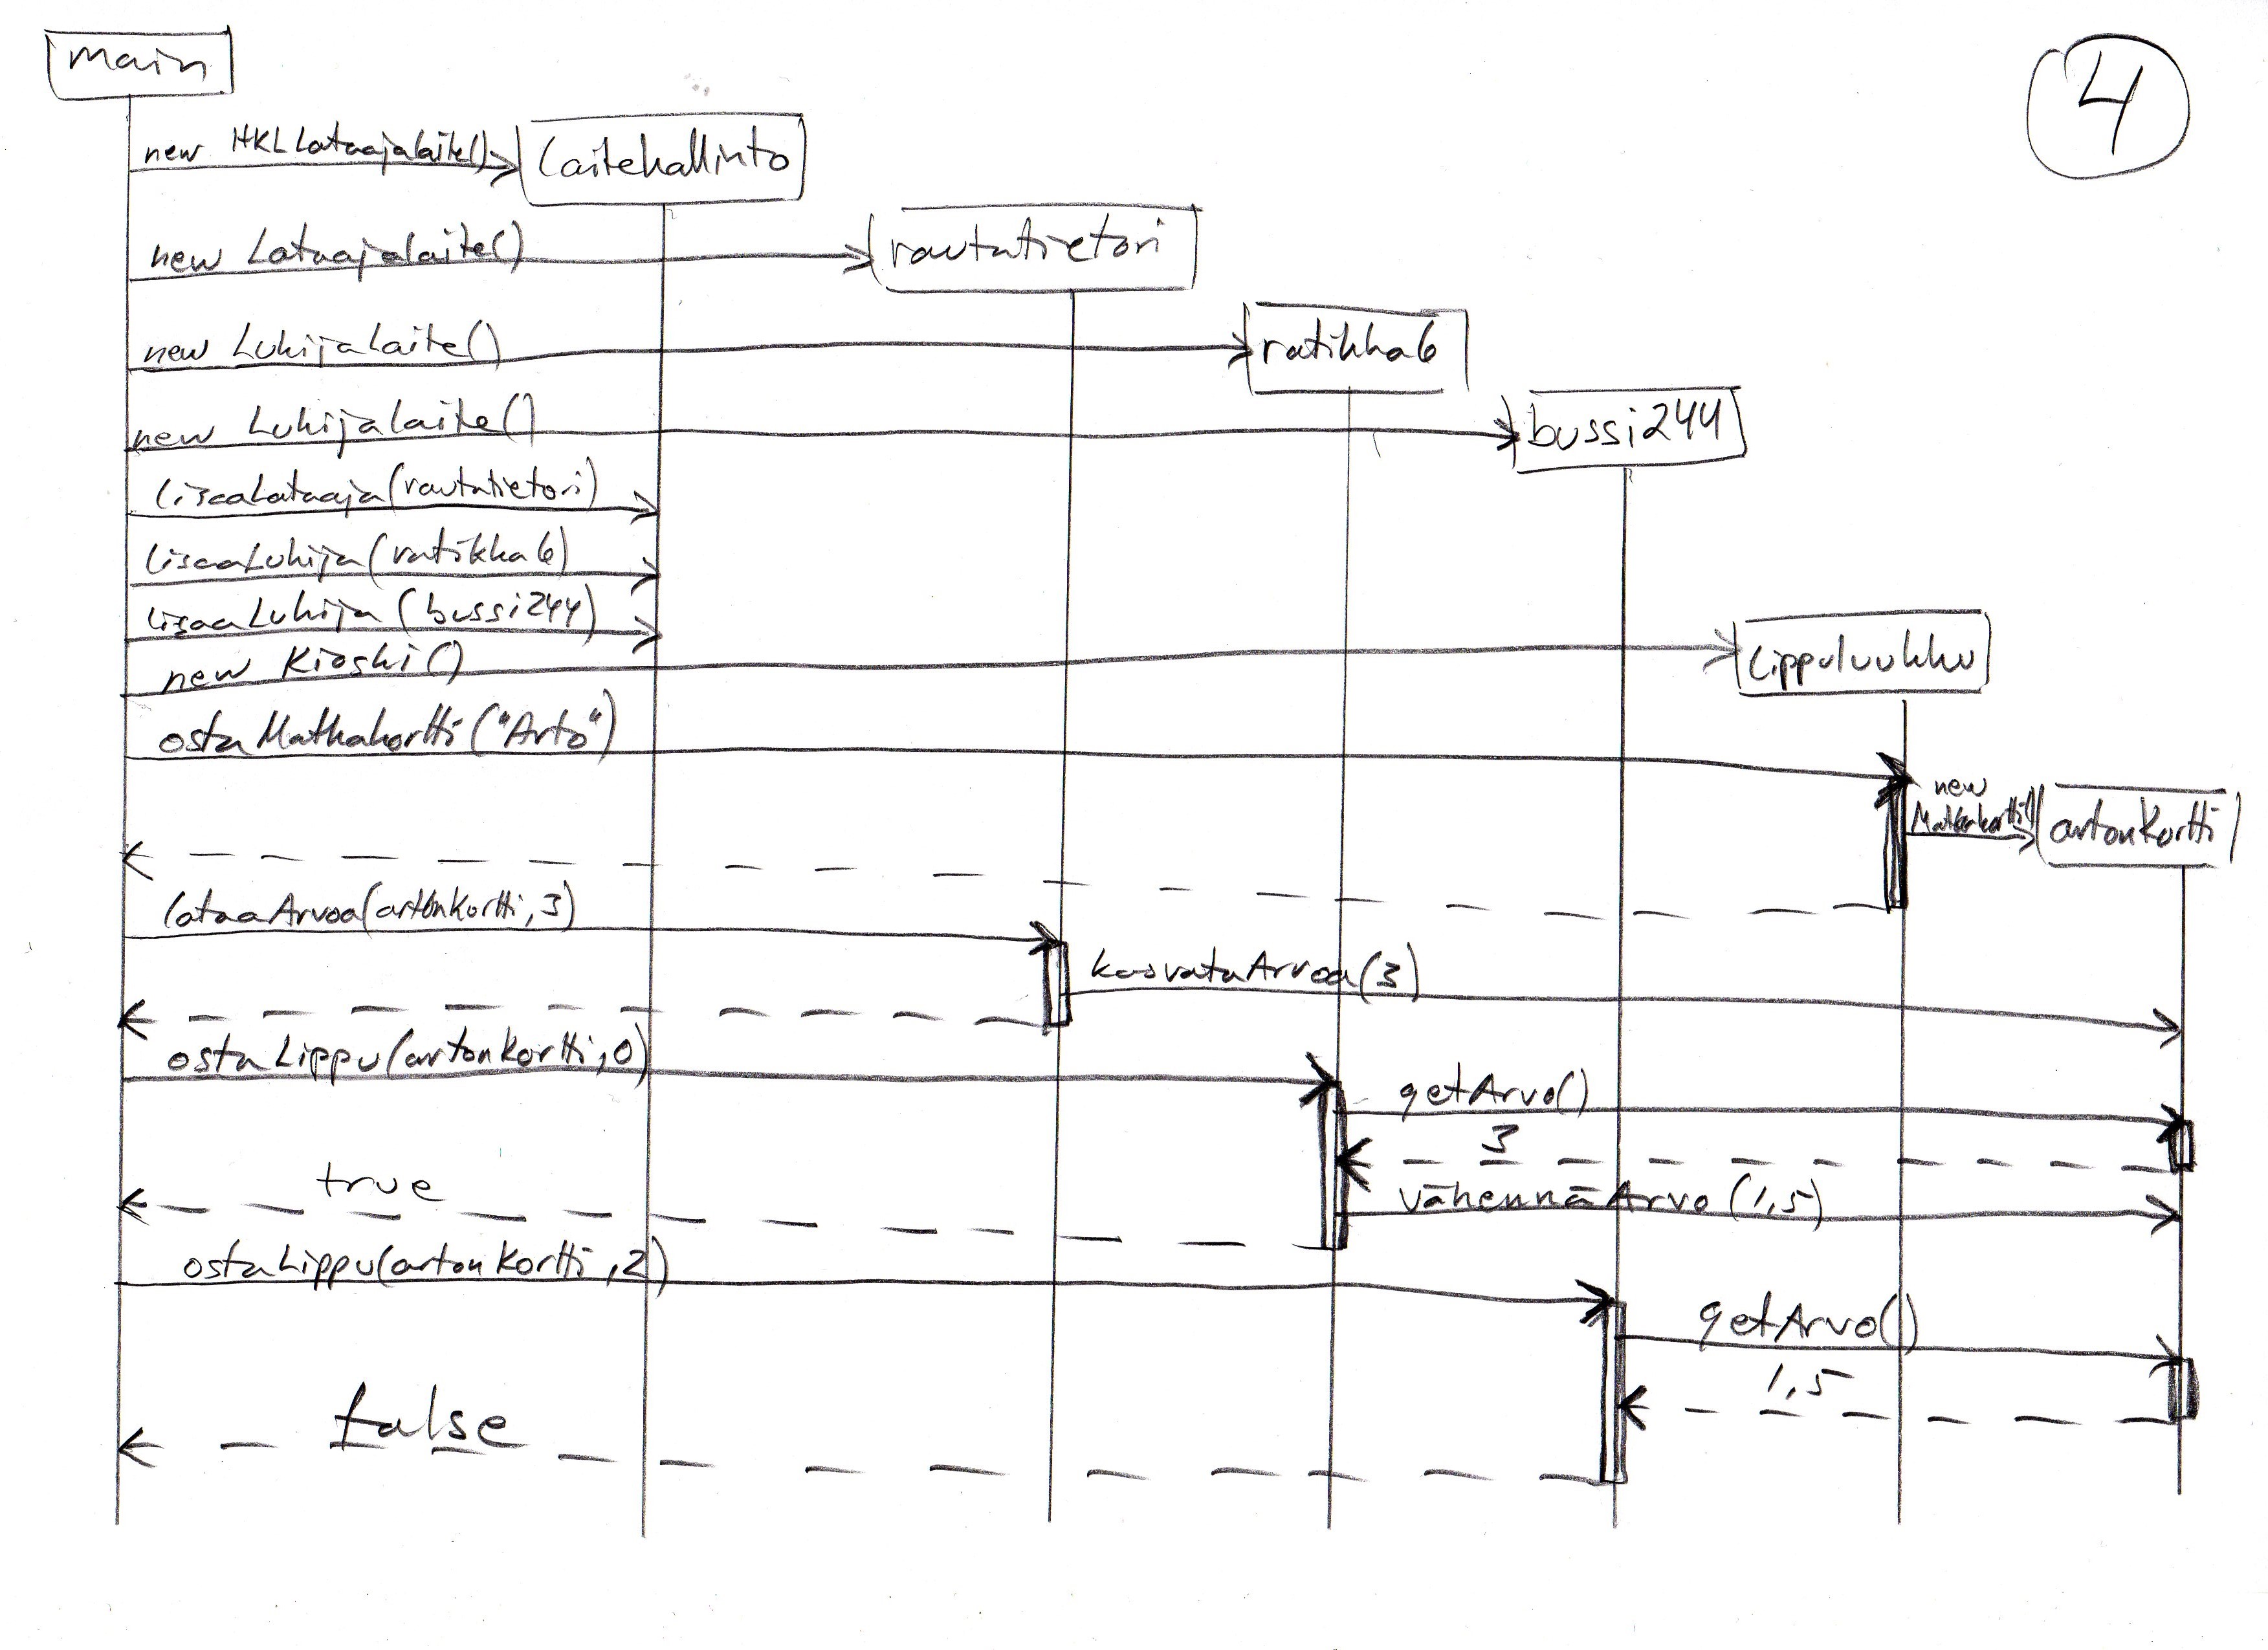 main
4
new HKLLataajalaite()
laitehallinto
new Lataajalaite()
rautatietori
new Lukijalaite()
ratikka6
new Lukijalaite()
bussi244
lisaaLataaja(rautatietori)
lisaaLukija(ratikka6)
lisaaLukija(bussi244)
new Kioski()
lippuluukku
ostaMatkakortti("Arto")
new
Matkakortti()
artonKortti
lataaArvoa(artonKortti,3)
kasvataArvoa(3)
ostaLippu(artonKortti,0)
getArvo()
3
true
vähennäArvo(1,5)
ostaLippu(artonKortti,2)
getArvo()
1,5
false